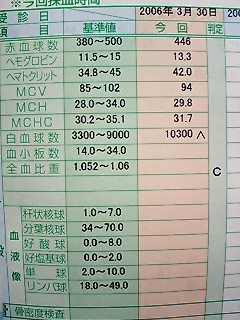 ※今回採血時間
受 診 日 2006年 3月 30日 20
項目 基準値 今 回 判定
赤血球数 380~500 446
ヘモグロビン 11.5~15 13.3
ヘマトクリット 34.8~45 42.0
MCV 85~102 94
MCH 28.0~34.0 29.8
MCHC 30.2~35.1 31.7
白血球数 3300~9000 10300 ∧
血小板数 14.0~34.0
全血比重 1.052~1.06
C
血液像
杆状核球 1.0~7.0
分葉核球 34~70.0
好 酸 球 0.0~8.0
好塩基球 0.0~2.0
単 球 2.0~10.0
リンパ球 18.0~49.0
骨密度検査